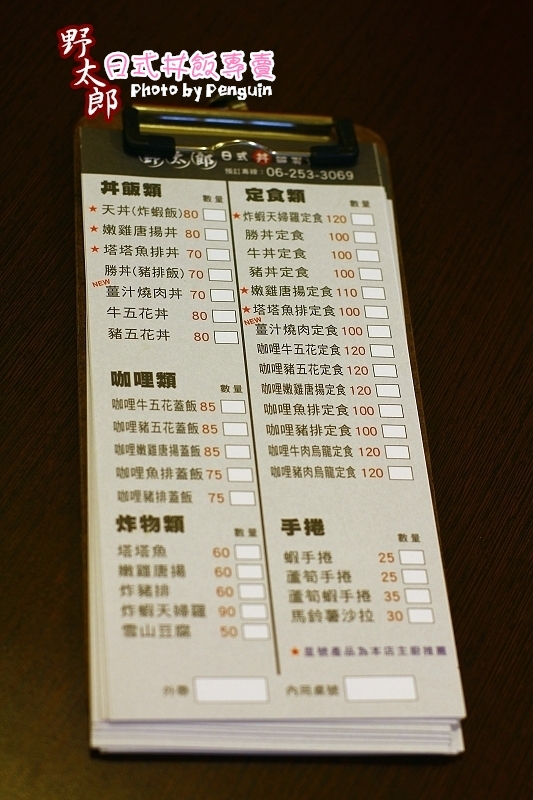 野太郎
日式丼飯專賣
Photo by Penguin
野太郎 日式丼
預訂專線：06-253-3069
丼飯類 數量
★ 天丼(炸蝦飯) 80
★ 嫩雞唐揚丼 80
★ 塔塔魚排丼 70
勝丼(豬排飯) 70
NEW 薑汁燒肉丼 70
牛五花丼 80
豬五花丼 80
咖哩類 數量
咖哩牛五花蓋飯 85
咖哩豬五花蓋飯 85
咖哩嫩雞唐揚蓋飯 85
咖哩魚排蓋飯 75
咖哩豬排蓋飯 75
炸物類 數量
塔塔魚 60
嫩雞唐揚 60
炸豬排 60
炸蝦天婦羅 90
雪山豆腐 50
定食類 數量
★ 炸蝦天婦羅定食 120
勝丼定食 100
牛丼定食 100
豬丼定食 100
★ 嫩雞唐揚定食 110
★ 塔塔魚排定食 100
NEW 薑汁燒肉定食 100
咖哩牛五花定食 120
咖哩豬五花定食 120
咖哩嫩雞唐揚定食 120
咖哩魚排定食 100
咖哩豬排定食 100
咖哩牛肉烏龍定食 120
咖哩豬肉烏龍定食 120
手捲 數量
蝦手捲 25
蘆筍手捲 25
蘆筍蝦手捲 35
馬鈴薯沙拉 30
★ 星號產品為本店主廚推薦
外帶
內用桌號